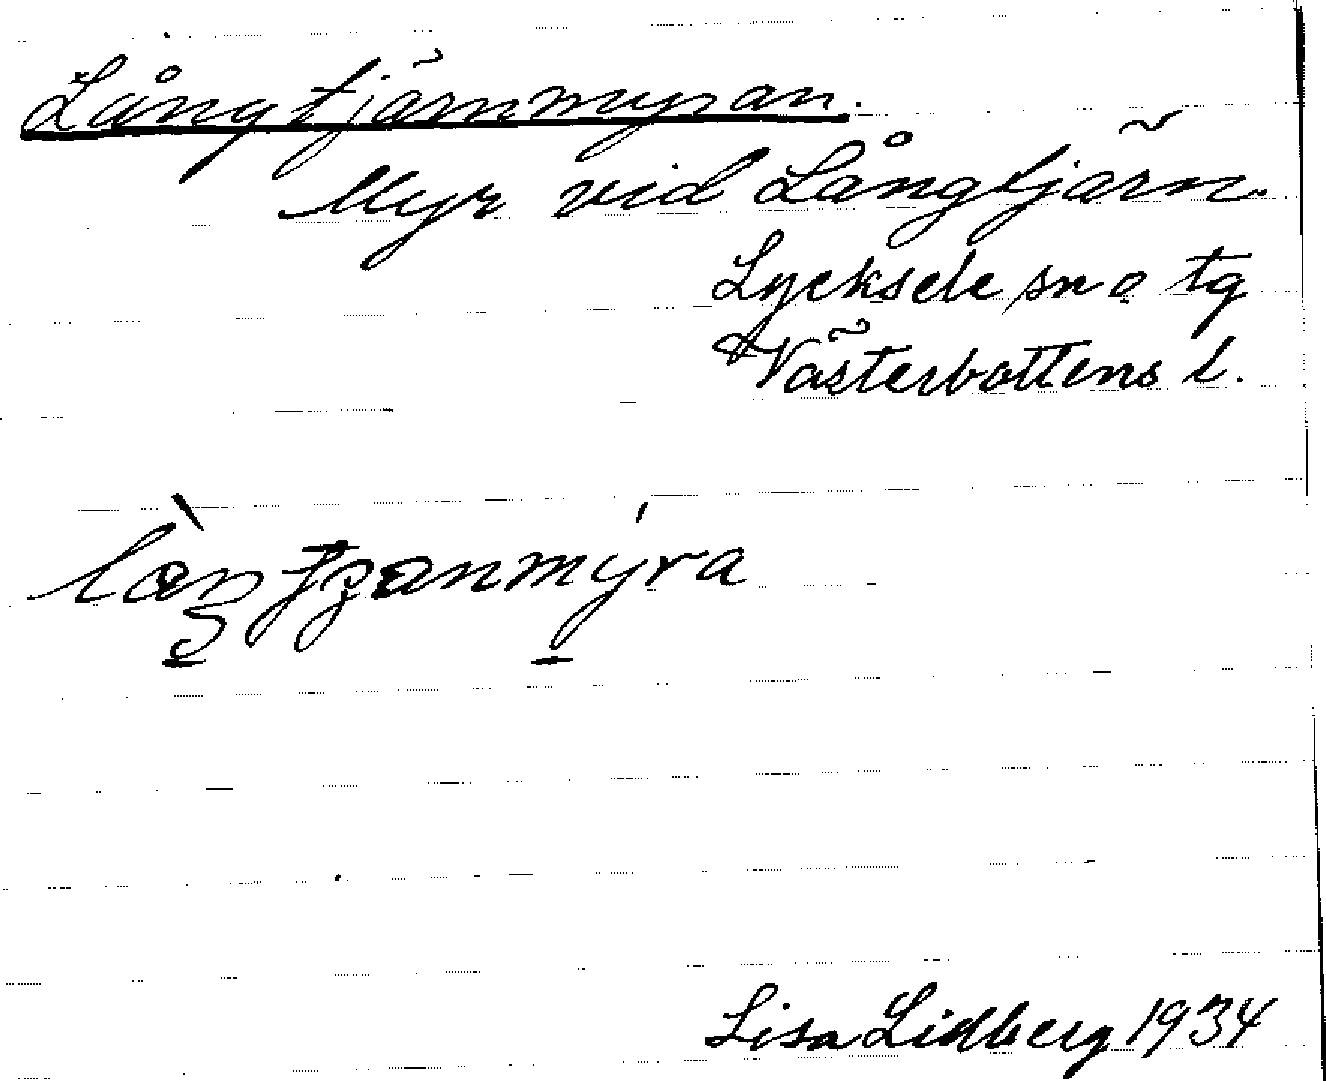 Långtjärnmyran.
Myr vid Långtjärn.
Lycksele sn o tg
Västerbottens l.
Lisa Lidberg 1934